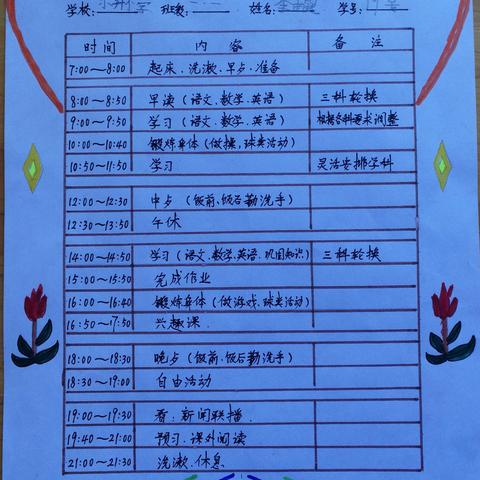 学校: 班级: 姓名: 学号:
时间 内容 备注
7:00～8:00 起床、洗漱、早点、准备
8:00～8:50 早读（语文、数学、英语） 三科轮换
9:00～9:50 学习（语文、数学、英语） 根据各科要求调整
10:00～10:40 锻炼身体（做操，球类活动）
10:50～11:50 学习 灵活安排学科
12:00～12:30 中点（饭前、饭后勤洗手）
12:30～13:50 午休
14:00～14:50 学习（语文、数学、英语、巩固知识） 三科轮换
15:00～15:50 完成作业
16:00～16:40 锻炼身体（做游戏、球类活动）
16:50～17:50 兴趣课.
18:00～18:30 晚点（饭前、饭后勤洗手）
18:30～19:00 自由活动
19:00～19:30 看：新闻联播.
19:40～21:00 预习、课外阅读
21:00～21:30 洗漱、休息